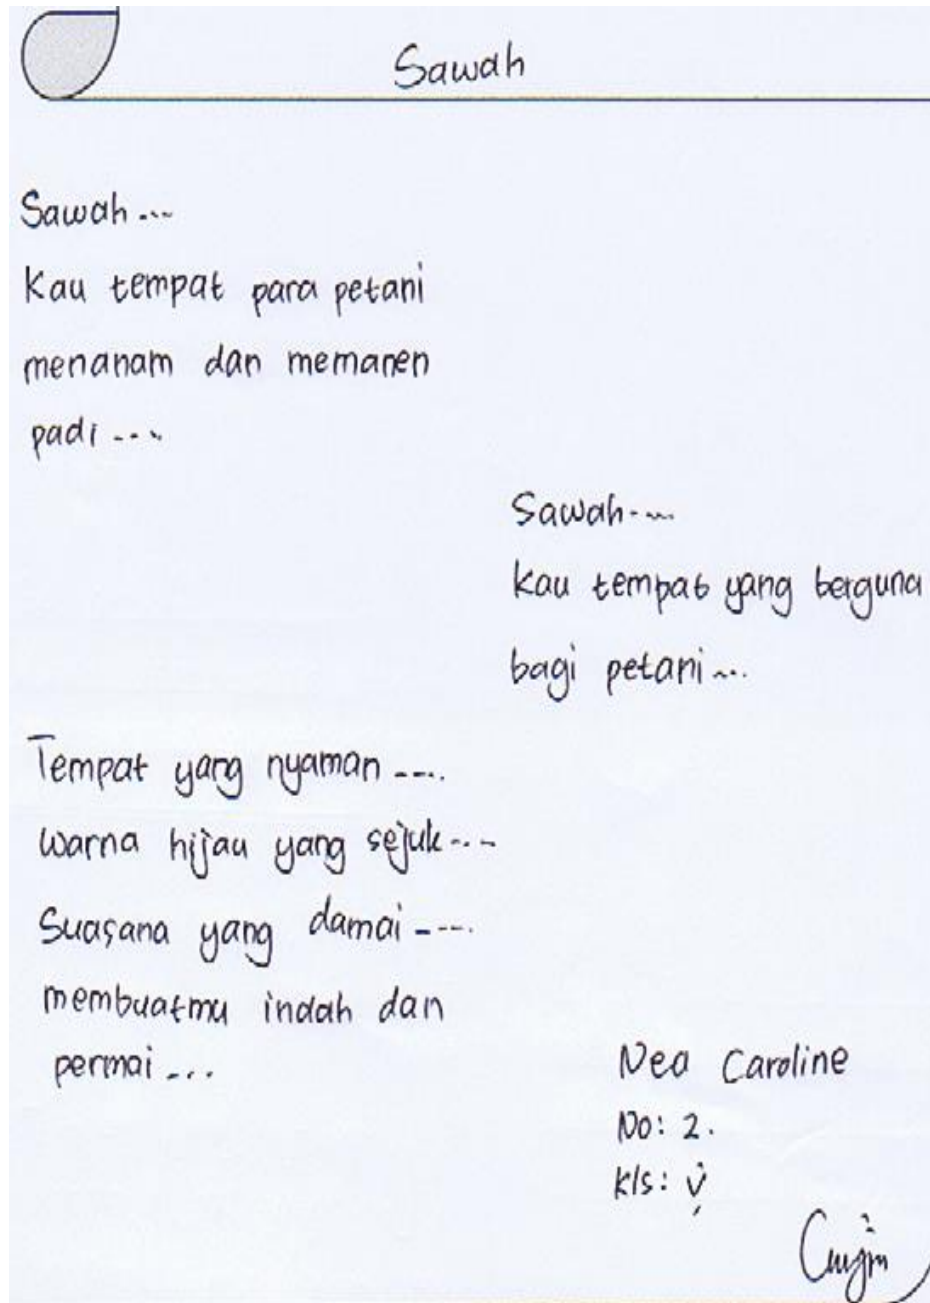 Sawah
Sawah ...
Kau tempat para petani
menanam dan memanen
padi ....
Sawah....
kau tempat yang berguna
bagi petani ...
Tempat yang nyaman ....
Warna hijau yang sejuk...
Suasana yang damai ....
membuatmu indah dan
permai ...
Nea Caroline
No: 2.
kls: V